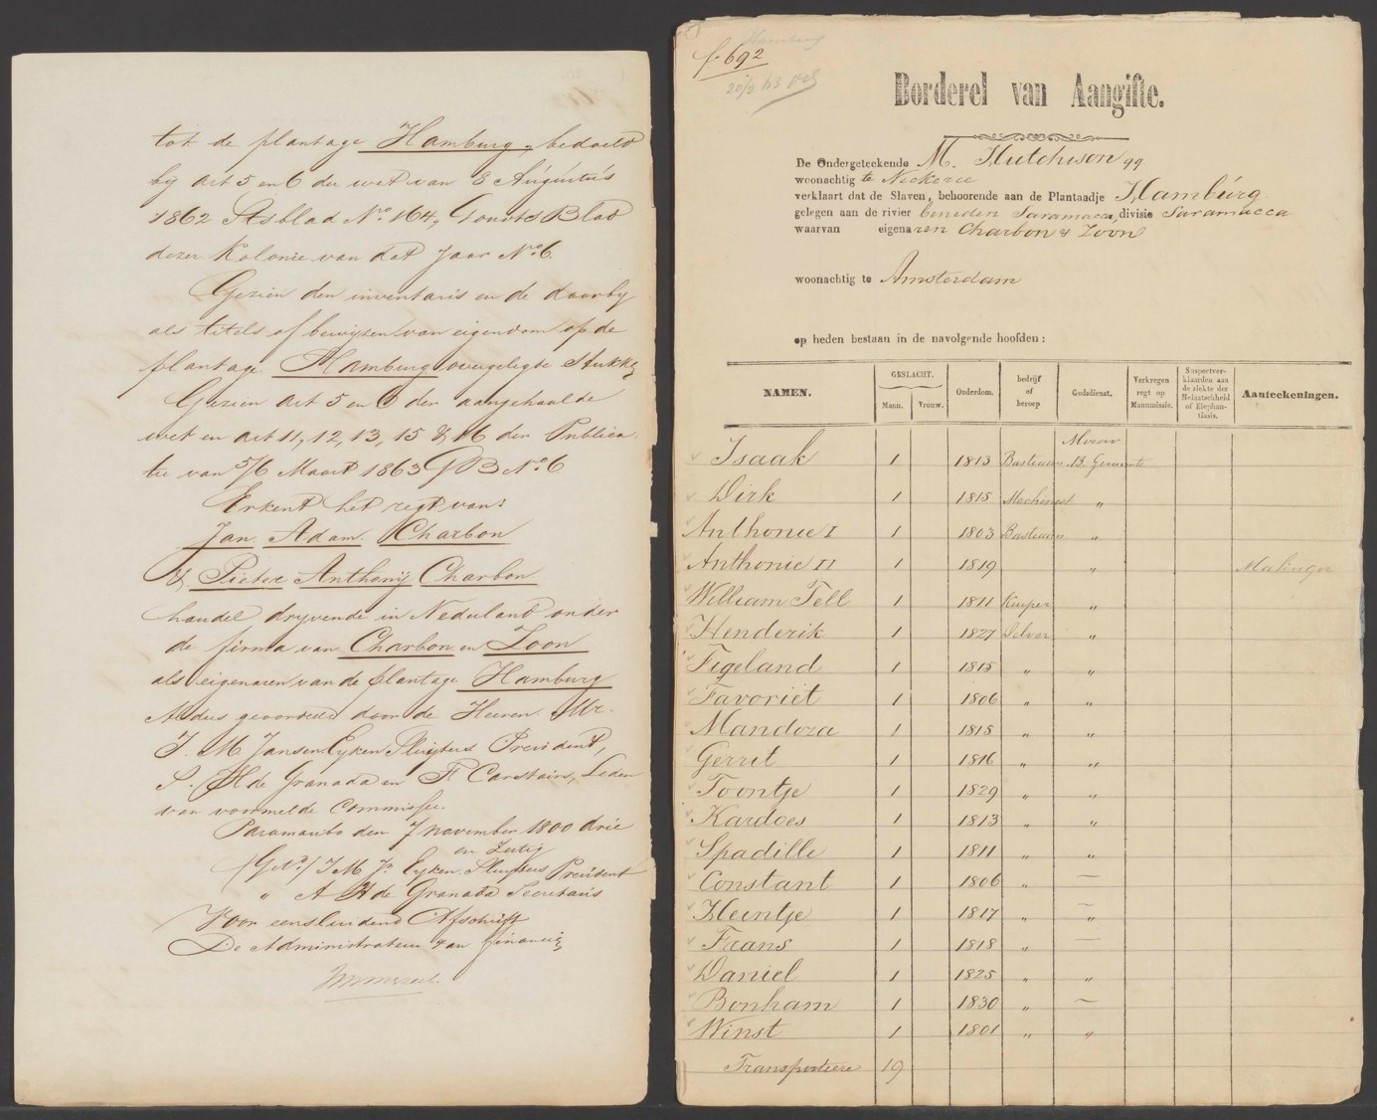 tot de plantage Hamburg, bedoeld
by art 5 en 6 der wet van 8 Augustus
1862 Stsblad No. 164, Gouvts Blad
dezer Kolonie van dat jaar No. 6.
Gezien den inventaris en de daarby
als titels of bewyzen van eigendom op de
plantage Hamburg overgelegde Stukken
Gezien art 5 en 6 der aangehaalde
wet en art 11, 12, 13, 15 & 16 der Publica-
tie van 5/6 Maart 1863 GB No. 6
Erkent het regt van:
Jan Adam Charbon
& Pieter Anthonÿ Charbon
handel dryvende in Nederland onder
de firma van Charbon en Zoon
als eigenaren van de plantage Hamburg
Aldus geoordeeld door de Heeren Mr.
J. M. Jansen Eyken Sluyters President,
S. H. de Granada en F. Carstairs, Leden
van voormelde Commissie.
Paramaribo den 7 november 1800 drie
en Zestig
(Getd.) J M Js. Eyken Sluyters President
" A H de Granada Secretaris
Voor eensluidend Afschrift
De Administrateur van financien
Hamburg
f. 692
Borderel van Aangifte.
De Ondergeteekende M. Hutchison qq
woonachtig te Nickerie
verklaart dat de Slaven, behoorende aan de Plantaadje Hamburg
gelegen aan de rivier beneden Saramacca, divisie Saramacca
waarvan eigenaren Charbon & Zoon
woonachtig te Amsterdam
op heden bestaan in de navolgende hoofden:
NAMEN. GESLACHT. Mann. Vrouw. Ouderdom. bedrijf of beroep Godsdienst. Verkregen regt op Manumissie. Suspectverklaarden aan de ziekte der Melaatschheid of Elephantiasis. Aanteekeningen.
Isaak 1 1813 Bastiaan Morav. B. Gemeente
Dirk 1 1815 Machinist "
Anthonie I 1 1803 Bastiaan "
Anthonie II 1 1819 " Malinger
William Tell 1 1811 Kuyper "
Henderik 1 1827 Delver "
Figeland 1 1815 " "
Favoriet 1 1806 " "
Mandoza 1 1815 " "
Gerrit 1 1816 " "
Toontje 1 1829 " "
Kardoes 1 1813 " "
Spadille 1 1811 " "
Constant 1 1806 " —
Heintje 1 1817 " "
Frans 1 1818 " —
Daniel 1 1825 " "
Bonham 1 1830 " —
Winst 1 1801 " "
Transporteere 19